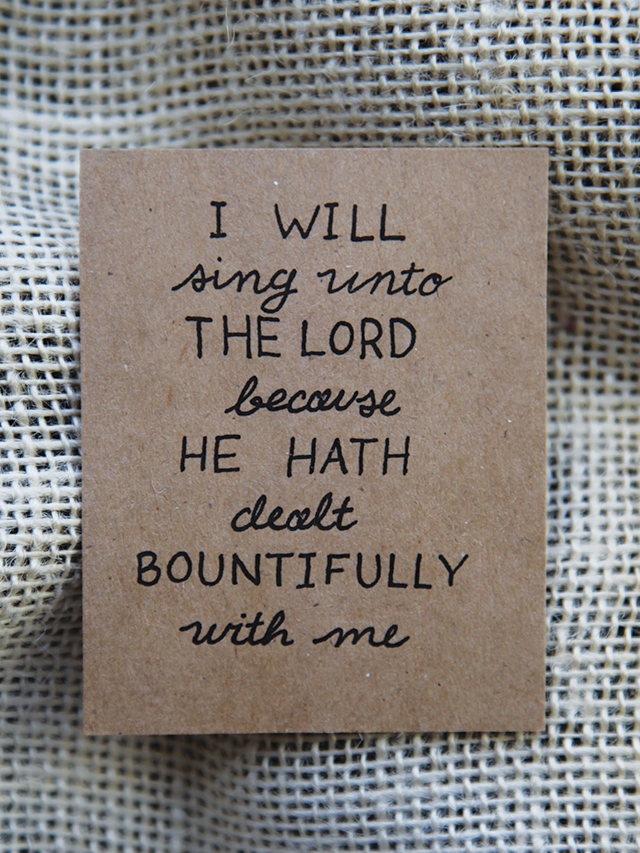 I WILL
sing unto
THE LORD
because
HE HATH
dealt
BOUNTIFULLY
with me